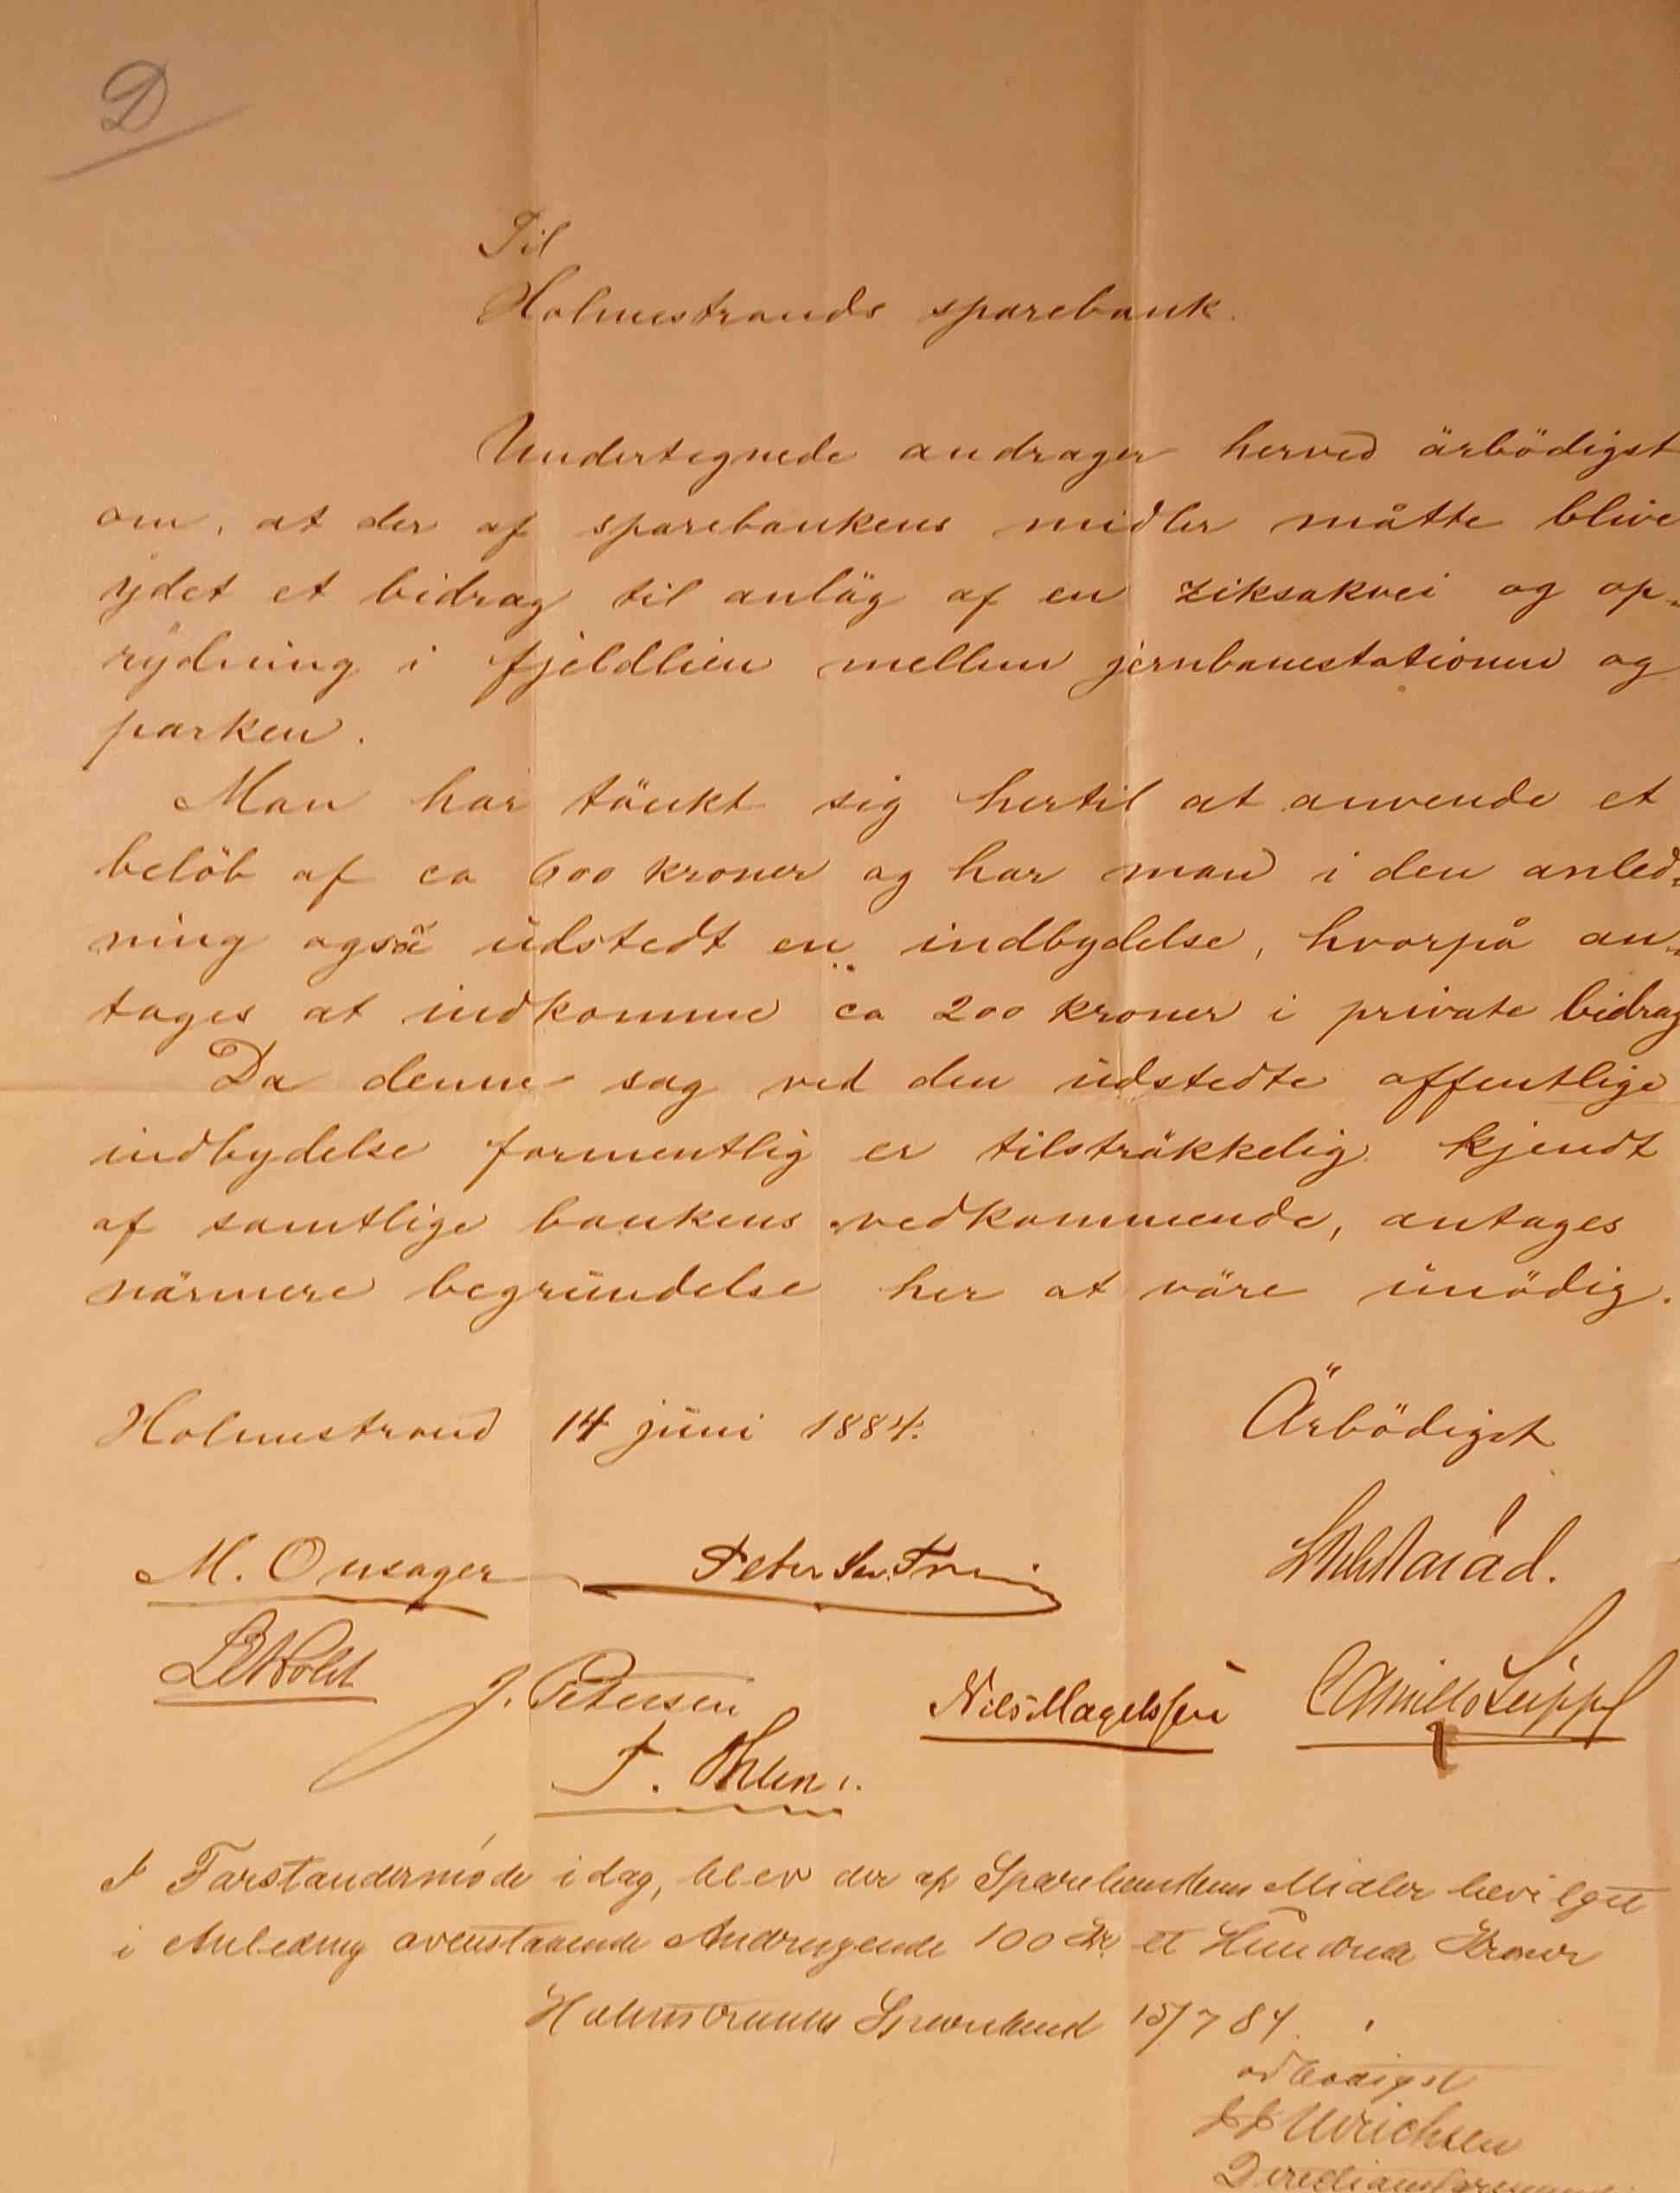 D
Til
Holmestrands sparebank.
Undertegnede andrager herved ärbödigst
om, at der af sparebankens midler måtte blive
ydet et bidrag til anläg af en ziksakvei og op-
rydning i fjeldlien mellem jernbanestationen og
parken.
Man har tänkt sig hertil at anvende et
belöb af ca 600 kroner og har man i den anled-
ning også udstedt en indbydelse, hvorpå an-
tages at indkomme ca 200 kroner i private bidrag
Da denne sag ved den udstedte offentlige
indbydelse formentlig er tilsträkkelig kjendt
af samtlige bankens vedkommende, antages
närmere begrundelse her at väre unödig.
Holmestrand 14 juni 1884. Ärbödigst
M. Onsager Peter
J. Petersen Nils Magelssen Camillo
F.
I Forstandermöde idag, blev der af Sparebankens Midler bevilget
i Anledning ovenstaaende Andragende 100 Kr. et Hundrede Kroner
Holmestrands Sparebank 15/7 84.
ærbödigst
Ulrichsen